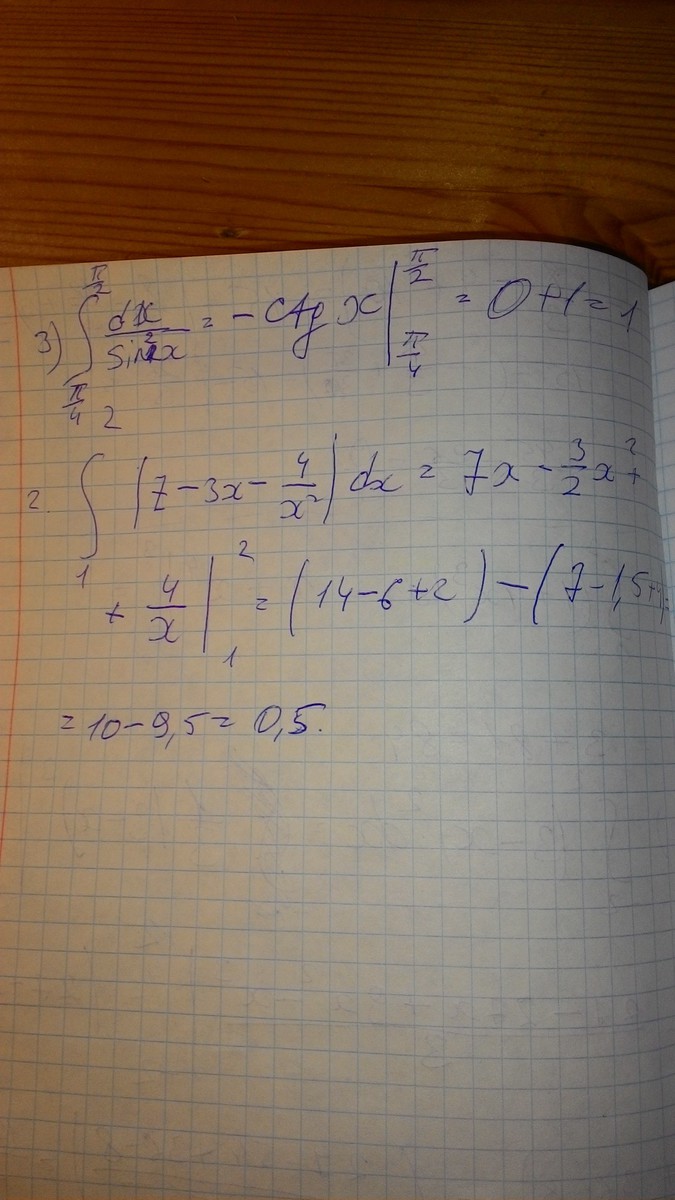 3) ∫_{π/4}^{π/2} dx/sin²x = -ctg x |_{π/4}^{π/2} = 0+1=1
2. ∫_1^2 |7-3x-4/x²| dx = 7x - 3/2 x² +
+ 4/x |_1^2 = (14-6+2) - (7-1,5+4)=
=10-9,5= 0,5.